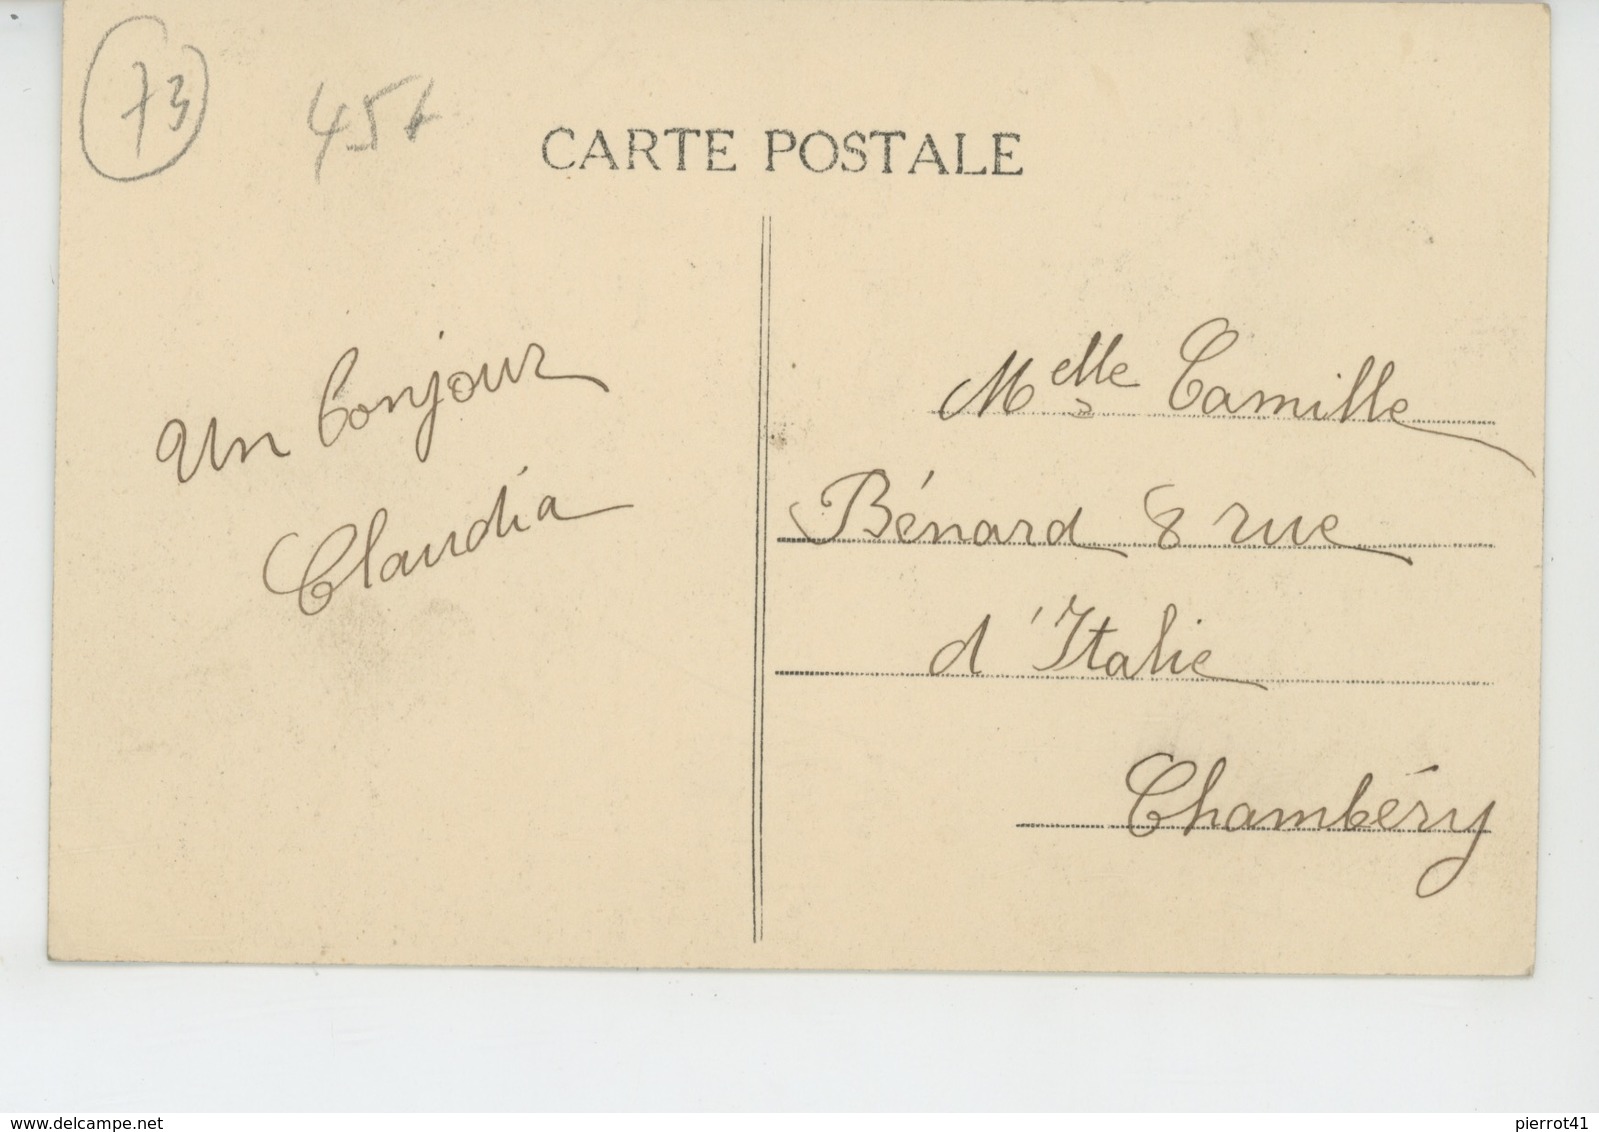 73
45
CARTE POSTALE
Un bonjour
Claudia
Melle Camille
Bénard 8 rue
d'Italie
Chambéry
www.delcampe.net
pierrot41